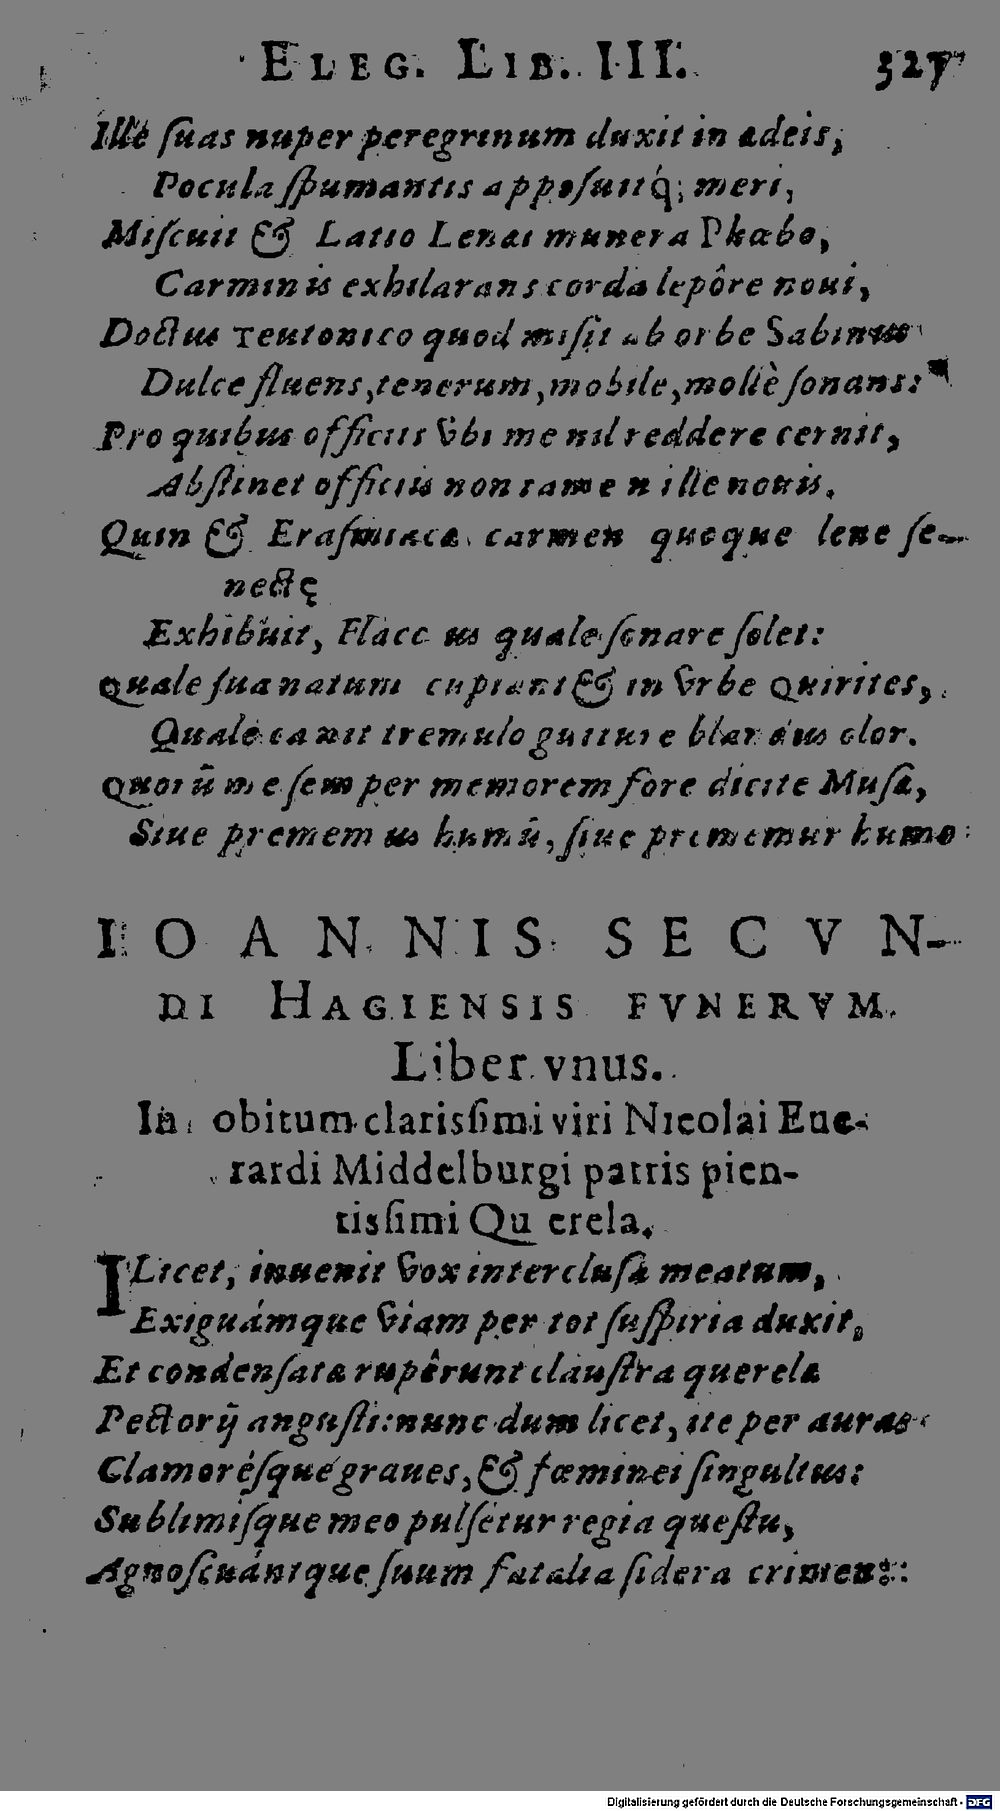 ELEG. LIB. III. 327
Ille ſuas nuper peregrinum duxit in ædeis,
Pocula ſpumantis appoſuitq́; meri,
Miſcuit & Latio Lenæi munera Phœbo,
Carminis exhilarans corda lepôre noui,
Doctus Teutonico quod miſit ab orbe Sabinus
Dulce fluens, tenerum, mobile, mollè ſonans:
Pro quibus officiis vbi me nil reddere cernit,
Abſtinet officiis non tamen ille nouis.
Quin & Eraſmiacæ carmen quoque lene ſe-
nectę
Exhibuit, Flaccus quale ſonare ſolet:
Quale ſua natum cupiant & in vrbe Quirites,
Quale canit tremulo gutture blandus olor.
Quorū me ſemper memorem fore dicite Muſæ,
Siue prememus humū, ſiue prememur humo:
IOANNIS SECVN-
DI HAGIENSIS FVNERVM.
Liber vnus.
In obitum clarisſimi viri Nicolai Eue-
rardi Middelburgi patris pien-
tisſimi Querela.
ILicet, inuenit vox interclusa meatum,
Exiguámque viam per tot ſuſpiria duxit,
Et condenſata rupêrunt clauſtra querelæ
Pectorij anguſti: nunc dum licet, ite per auras
Clamoréſque graues, & fœminei ſingultus:
Sublimiſque meo pulſetur regia queſtu,
Agnoſcuántque ſuum fatalia ſidera crimen:
Digitalisierung gefördert durch die Deutsche Forschungsgemeinschaft - DFG